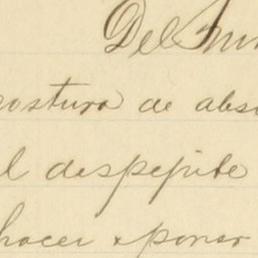 Del
postura de abs
l despepite
hacer x poner